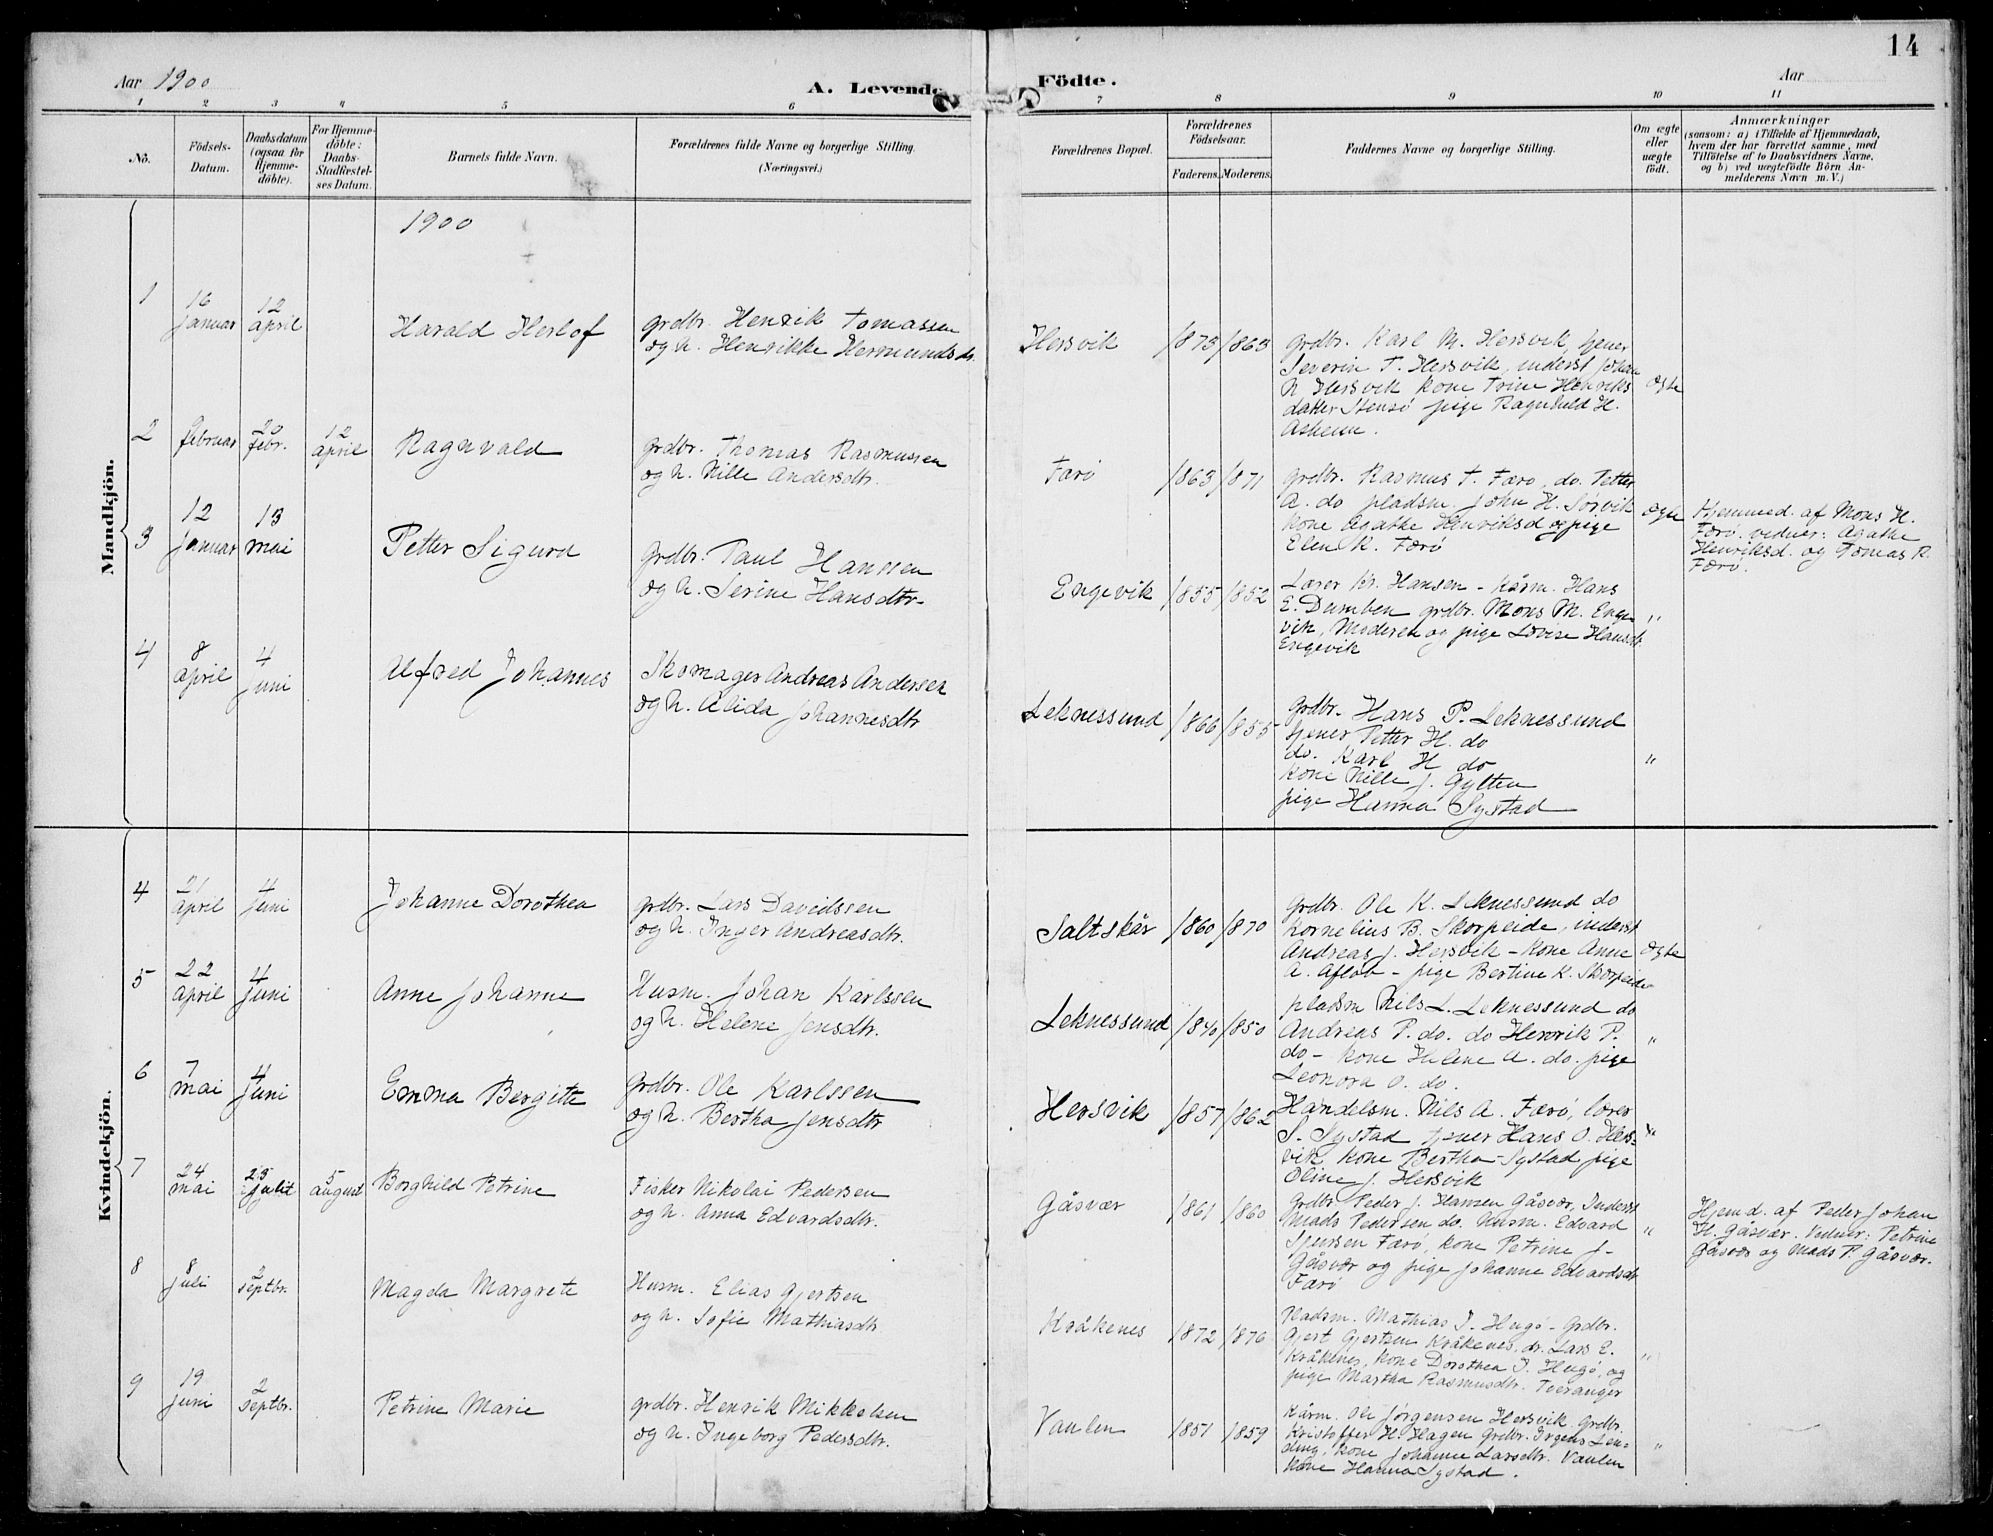 Aar 1900
A. Levende
1 2 3 4 5 6
No.
Födsels-
Datum.
Daabsdatum
(ogsaa for
Hjemme-
döbte).
For Hjemme-
döbte:
Daabs-
Stadfæstel-
ses Datum.
Barnets fulde Navn.
Forældrenes fulde Navne og borgerlige Stilling.
(Næringsvei.)
Mandkjön.
1900
1
16
januar
12
april
Harald Herlof
grdbr. Henrik Tomassen
og h. Henrikke Hermundsdr.
2
februar
20
febr.
12
april
Ragnvald
grdbr. Thomas Rasmussen
og h. Nille Andersdtr.
3
12
januar
13
mai
Petter Sigurd
grdbr. Paul Hanssen
og h. Serine Hansdtr.
4
8
april
4
juni
Alfred Johannes
Skomager Andreas Andersen
og h. Alida Johannesdtr
Kvindekjön.
4
21
april
4
juni
Johanne Dorothea
grdbr. Lars Davidssen
og h. Inger Andreasdtr.
5
22
april
4
juni
Anne Johanne
Husm. Johan Karlssen
og h. Helene Jensdtr.
6
7
mai
4
juni
Emma Bergitte
grdbr. Ole Karlssen
og h. Bertha Jensdtr
7
24
mai
23
5
august
Borghild Petrine
Fisker Nikolai Pedersen
og h. Anna Edvardsdtr.
8
8
juli
2
septbr.
Magda Margrete
Husm. Elias Gjertsen
og h. Sofie Mathiasdtr
9
19
juni
2
septbr.
Petrine Marie
grdbr. Henrik Mikkelsen
og h. Ingeborg Pedersdtr.
14
Födte.
Aar
7 8 9 10 11
Forældrenes Bopæl.
Forældrenes
Födselsaar.
Faderens. Moderens.
Faddernes Navne og borgerlige Stilling.
Om ægte
eller
uægte
födt.
Anmærkninger
(saasom: a) i Tilfælde af Hjemmedaab,
hvem der har forrettet samme, med
Tilföielse af to Daabsvidners Navne,
og b) ved uægtefödte Börn An-
melderens Navn m. V.)
Hersvik
1875
1865
grdbr. Karl M. Hersvik, tjener
Severin T. Hersvik, inderst Johan
N Hersvik kone Trine Henriks
datter Stensö pige Ragnhild H.
Askeim.
ægte
Færö
1863
1871
grdbr. Rasmus T. Færö, do. Petter
A. do pladsm. John H. Sörvik
kone Agathe Henriksd og pige
Elen K. Færö
ægte
Hjemmed. af Mons H.
Færö. vidner: Agathe
Henriksd. og Tomas R.
Færö.
Engevik
1855
1852
Lærer Kr. Hansen - Kårm. Hans
E. Dumben grdbr. Mons M. Enge
vik, Moderen og pige Lovise Hansdt.
Engevik
"
Leknessund
1866
1855
grdbr. Hans P. Leknessund
tjener Petter H. do
do. Karl H do
kone Nille J. Gylten
pige Hanna Systad
"
Saltskår
1860
1870
grdbr. Ole K. Leknessund do
Kornelius B. Skorpeide, inderst
Andreas J. Hersvik - kone Anne
A. Afløb - pige Bertine K. Skorpeide
ægte
Leknessund
1840
1850
pladsm Nils L. Leknessund do
Andreas P. do. do Henrik P.
do - kone Helene A. do. pige
Leonora O. do.
"
Hersvik
1857
1862
Handelsm. Nils A. Færö, lærer
S. Systad tjener Hans O. Hers-
vik kone Bertha Systad pige
Oline J. Hersvik
"
Gåsvær
1861
1860
Grdbr. Peder J. Hansen Gåsvær, Inderst
Mads Pedersen do. Husm. Edvard
Færö, kone Petrine J-
Gåsvær og pige Johanne Edvardsdt
Færö
"
Hjemd. af Petter Johan
H. Gåsvær. Vidner: Petrine
Gåsvær og Mads P. Gåsvær.
Kråkenes
1872
1876
Pladsm. Mathias I. Hugö - Grdbr.
Gjert Gjertsen Kråkenes, do. Lars E.
Kråkenes, kone Dorothea I. Hugö, og
pige Martha Rasmusdtr. Tveranger
"
Vaulen
1851
1859
Kårm. Ole Jørgensen Hersvik. Grdbr.
Kristoffer H. Hagen Grdbr. Len-
ding. kone Johanne Larsdtr. Vaulen
kone Hanna Systad.
"